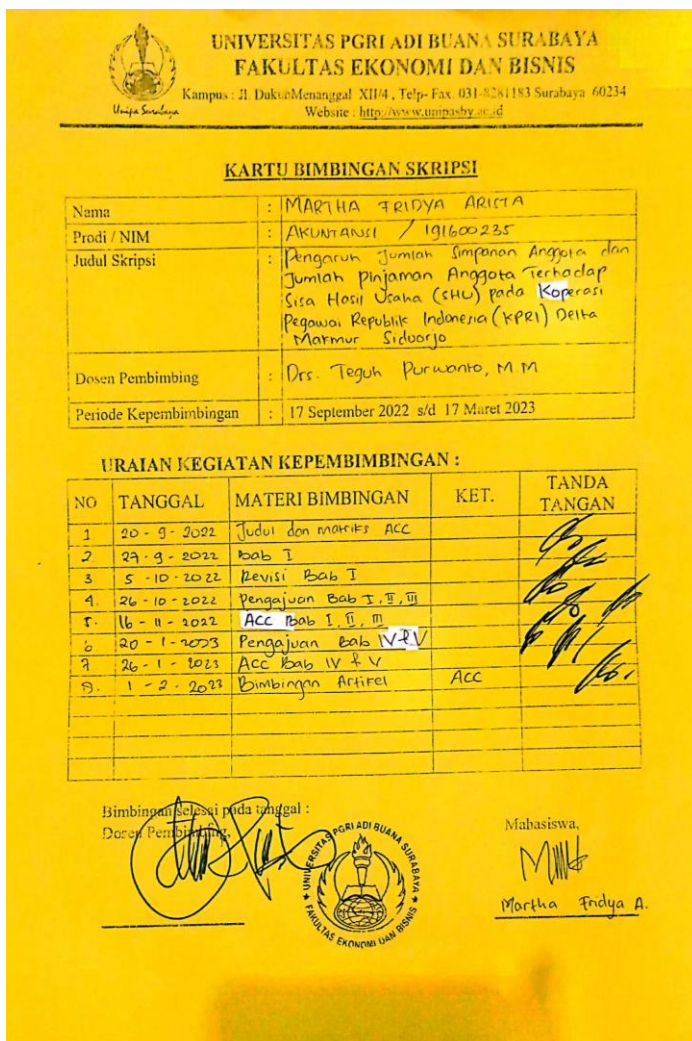 UNIVERSITAS PGRI ADI BUANA SURABAYA
FAKULTAS EKONOMI DAN BISNIS
Kampus : Jl. Dukuh Menanggal XII/4 , Telp- Fax. 031-8281183 Surabaya 60234
Website : http://www.unipasby.ac.id
Unipa Surabaya
KARTU BIMBINGAN SKRIPSI
Nama : MARTHA FRIDYA ARISTA
Prodi / NIM : AKUNTANSI / 191600235
Judul Skripsi : Pengaruh Jumlah Simpanan Anggota dan
Jumlah Pinjaman Anggota Terhadap
Sisa Hasil Usaha (SHU) pada Koperasi
Pegawai Republik Indonesia (KPRI) Delta
Makmur Sidoarjo
Dosen Pembimbing : Drs. Teguh Purwanto, M.M
Periode Kepembimbingan : 17 September 2022 s/d 17 Maret 2023
URAIAN KEGIATAN KEPEMBIMBINGAN :
NO TANGGAL MATERI BIMBINGAN KET. TANDA TANGAN
1 20 - 9 - 2022 Judul dan matriks ACC
2 27 - 9 - 2022 bab I
3 5 - 10 - 2022 Revisi Bab I
4. 26 - 10 - 2022 Pengajuan Bab I, II, III
5. 16 - 11 - 2022 ACC Bab I, II, III
6 20 - 1 - 2023 Pengajuan Bab IV & V
7 26 - 1 - 2023 Acc Bab IV & V
8. 1 - 2 - 2023 Bimbingan Artikel ACC
Bimbingan selesai pada tanggal :
Dosen Pembimbing,
UNIVERSITAS PGRI ADI BUANA SURABAYA
FAKULTAS EKONOMI DAN BISNIS
Mahasiswa,
Martha Fridya A.